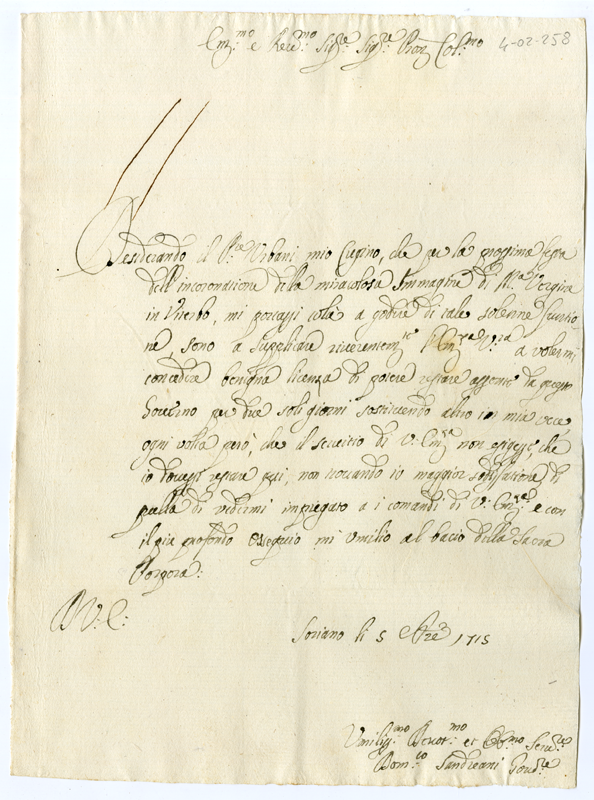 Em.mo e Rev.mo Sig.re Sig.re Pron Col.mo 4-02-258
Desiderando il P.re Urbani mio Cugino, che per la prossima festa
dell'incoronazione della miracolosa Immagine di M.a Vergine
in Viterbo, mi portassi colà a godere di tale solenne funtio-
ne, sono a supplicare riverentem.te l'Em.za V.ra a volermi
concedere benigna licenza di potere restare assente da questo
Governo per due soli giorni sostituendo altro in mia vece
ogni volta però, che il servitio di V: Em.za non esigesse, che
io dovessi restare qui, non trovando io maggior sodisfatione di
quella di vedermi impiegato a i comandi di V: Em.za e con
il più profondo ossequio mi umilio al bacio della Sacra
Porpora:
D V: E:
Soriano li 5 1715
Umiliss.mo Devot.mo et Obb.mo Serv.re
Dom.co Sandreani Gov.re